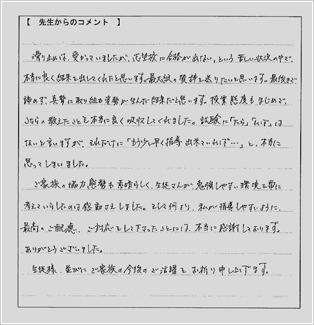 【 先生からのコメント 】
滑り止めは、受かっていましたが、志望校に合格が出ない、という苦しい状況の中で、
本当に良く結果を出してくれたと思います。最大級の賛辞を送りたいと思います。最後まで
諦めず、真摯に取り組む姿勢が生んだ結果だと思います。授業態度もまじめで、
こちらの教えたことを本当に良く吸収してくれました。試験に「たら」「れば」は
ないと言いますが、それだけに「もう少し早く指導出来ていれば…」と、本当に
思ってしまいました。
ご家族の協力態勢も素晴らしく、生徒さんが勉強しやすい環境を常に
考えていらしたのは感動さえしました。そして何より、私が指導しやすいように、
最高のご配慮、ご対応をして下さったことには、本当に感謝しております。
ありがとうございました。
生徒様、並びにご家族の今後のご活躍をお祈り申し上げます。